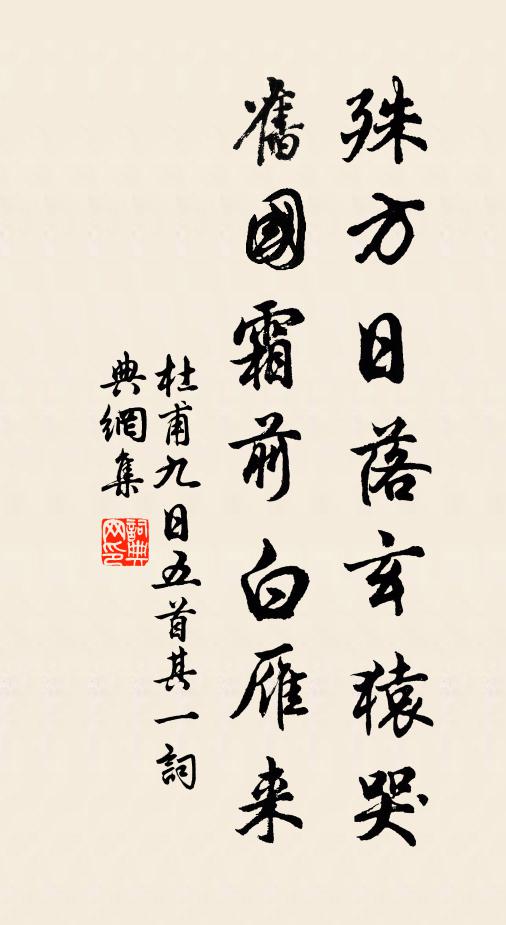 殊方日落玄猿哭
舊國霜前白雁来
杜甫九日五首其一詞
典網集
詞典网印